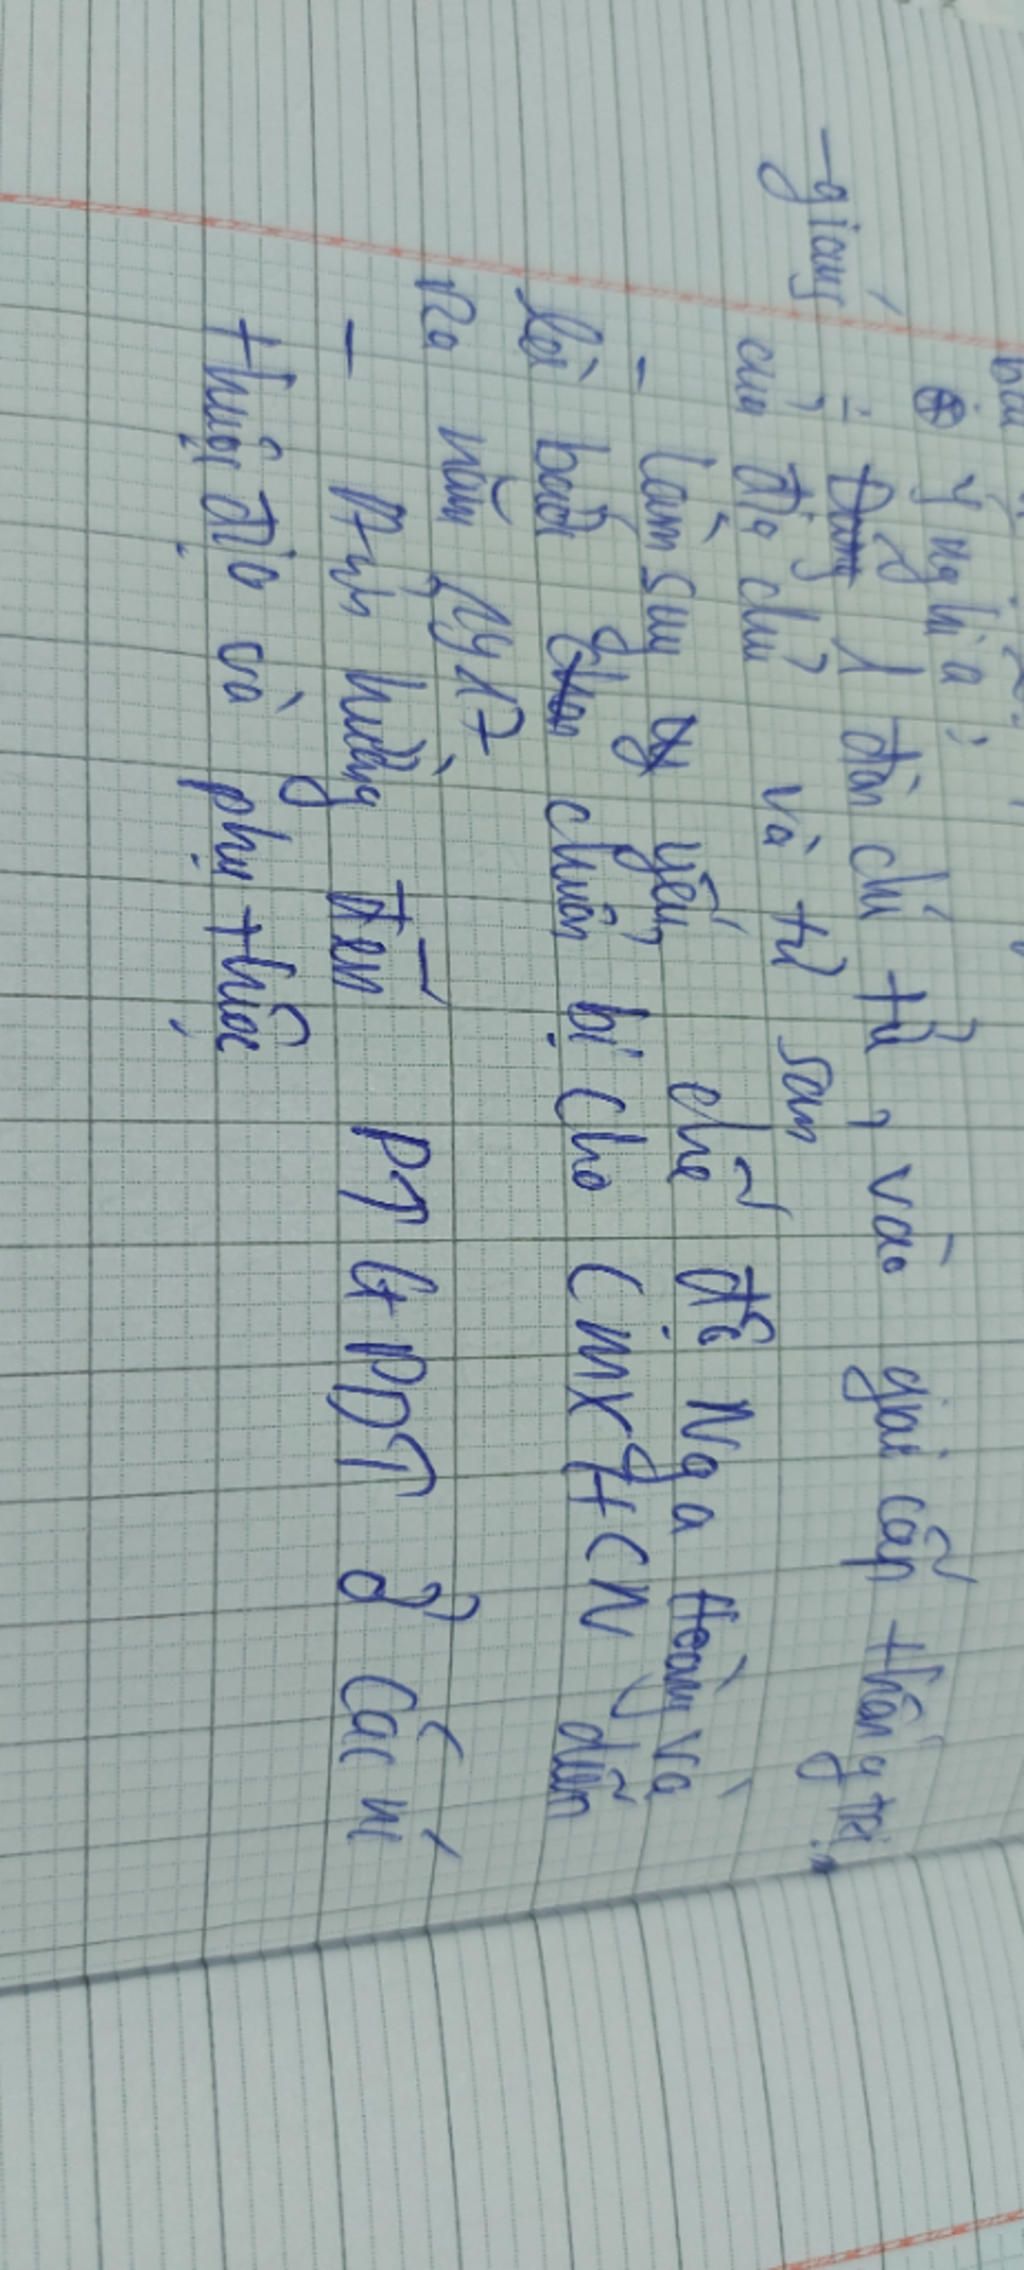 ⊕ Ý nghĩa:
- giáng 1 đòn chí tử, vào giai cấp thống trị
của địa chủ và tư sản
- làm suy yếu, chế độ Nga hoàng và
là bước chuẩn bị cho CMXHCN diễn
ra năm 1917
- Ảnh hưởng đến PTGPDT ở các nc
thuộc địa và phụ thuộc